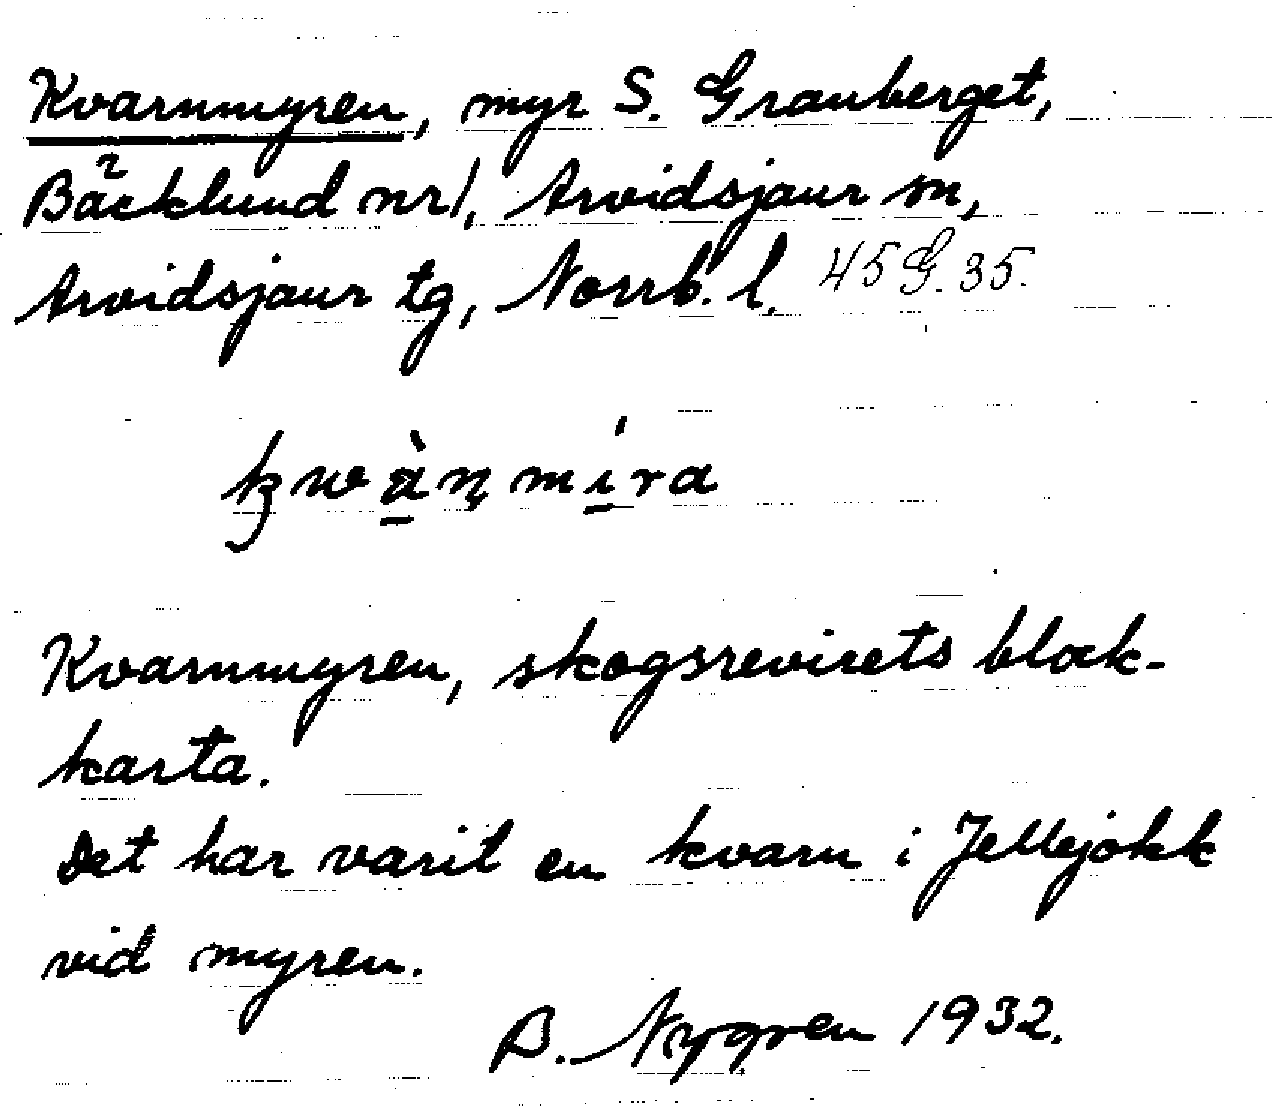 Kvarnmyren, myr S. Granberget,
Bäcklund nr 1, Arvidsjaur sn,
Arvidsjaur tg, Norrb. l. 45 G. 35.
Kvarnmyren, skogsrevirets block-
karta.
Det har varit en kvarn i Jellejokk
vid myren.
B. Nygren 1932.